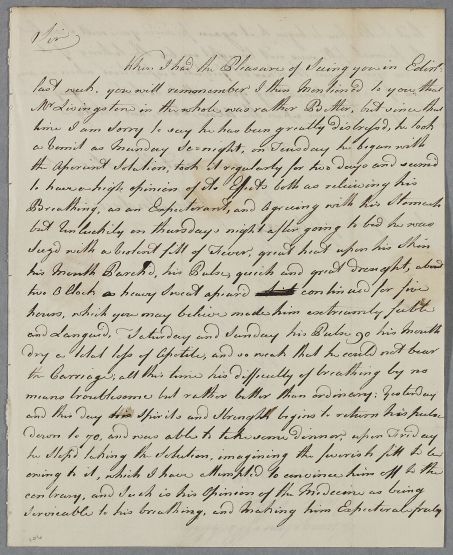 Sir
When I had the Pleasure of Seeing you in Edinr.
last week, you will remember I then mentiond to you that
Mr Livingston in the whole was rather Better, but since that
time I am sorry to say he has been greatly distressd, he took
a Vomit as Munday Senight, on Tuesday he began with
the Aperent Solution, took it regularly for two days and seemd
to have a high opinion of its Effects both as relieving his
Breathing, as an Expectorant, and Agreeing with his Stomach
but Unluckely on thursdays night after going to bed he was
Seiz'd with a Violent fitt of Fever, great heat upon his Skin
his Mouth Parch'd, his Pulse quick and great drought, about
two O Clock a heavy Sweat apeard continued for five
hours, which you may believe made him extreamly feeble
and Languid, Saturday and Sunday his Pulse 90 his Mouth
dry a total loss of Apetite, and so weak that he could not bear
the Carriage, all this time his difficulty of breathing by no
means troublesome but rather better than ordinary; Yesterday
and this day his Spirits and Strength begins to return his pulse
down to 70, and was able to take some dinner, upon Friday
he Stop'd taking the Solution, imagining the feverish fitt to be
owing to it, which I have attempted to convince him off to the
contrary, and Such is his Opinion of the Medecine as being
Serviceable to his breathing, and making him Expectorate freely